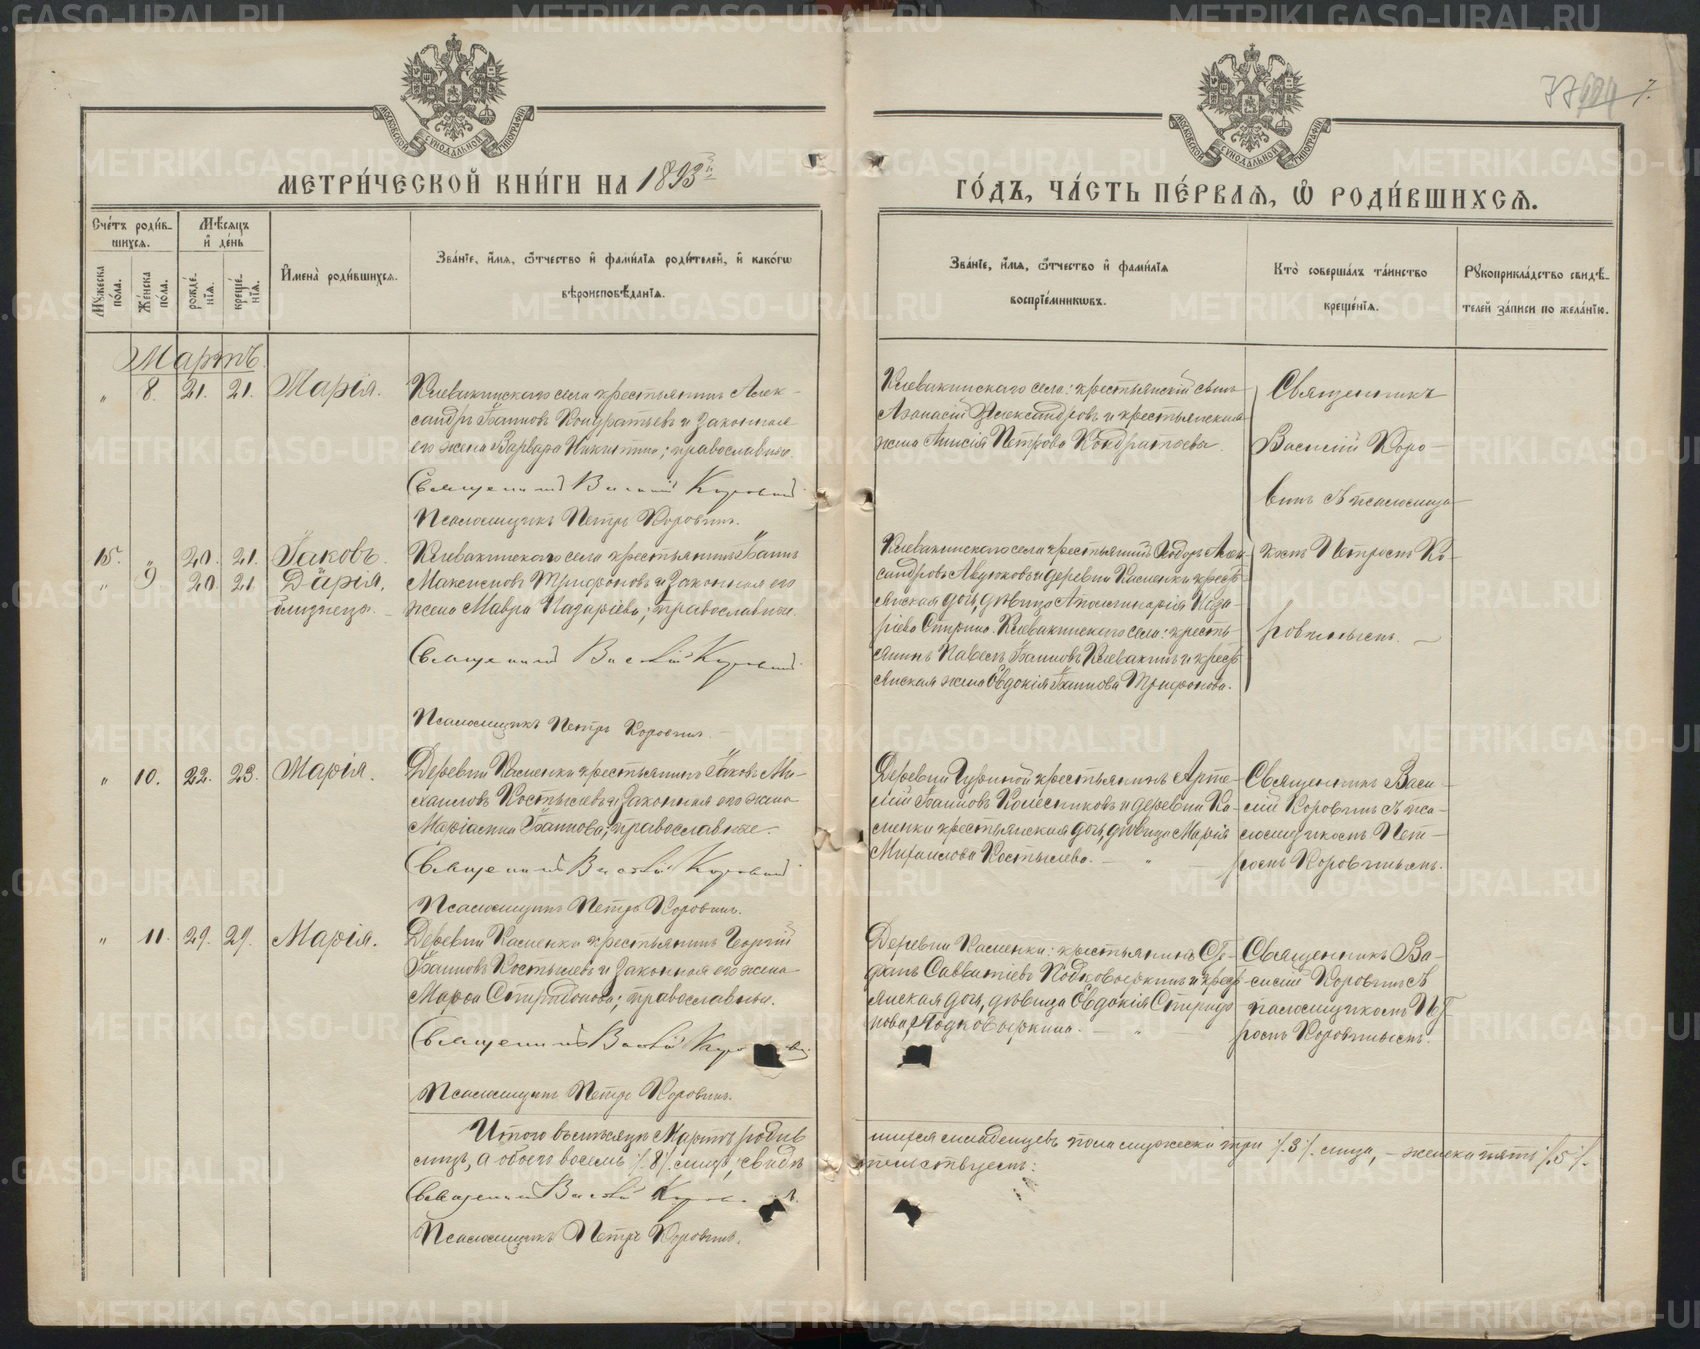 МЕТРИ́ЧЕСКОЙ КНИ́ГИ НА 1893й
ГО́ДЪ, ЧА́СТЬ ПЕ́РВАЯ, Ѡ РОДИ́ВШИХСЯ.
МОСКОВСКОЙ СѴНОДАЛЬНОЙ ТИПОГРАФІИ
МОСКОВСКОЙ СѴНОДАЛЬНОЙ ТИПОГРАФІИ
77
7.
Сче́тъ роди́вшихся.
Мѣ́сяцъ и҆ де́нь
Мꙋ́жеска по́ла.
Же́нска по́ла.
рожде́нїѧ.
креще́нїѧ.
И҆мена̀ роди́вшихся.
Зва́нїе, и҆́мѧ, ѻ҆́тчество и҆ фами́лїѧ роди́телей, и҆ како́гѡ
вѣроисповѣ́данїѧ.
Зва́нїе, и҆́мѧ, ѻ҆́тчество и҆ фами́лїѧ
воспрїе́мникѡвъ.
Кто̀ соверша́лъ та́инство
креще́нїѧ.
Рꙋкоприкла́дство свидѣ́-
телей за́писи по жела́нїю.
Мартъ
" 8. 21. 21. Марія.
Клевакинскаго села крестьянинъ Алек-
сандръ Іванновъ Кондратьевъ и законная
его жена Варвара Никитина; православные.
Священникъ Василій Коровинъ
Псаломщикъ Петръ Коровинъ.
Клевакинскаго села: крестьянскій сынъ
Аѳанасій Александровъ и крестьянская
жена Анисія Петрова Кондратьева.
Священникъ
Василій Коро-
винъ съ псаломщи-
комъ Петромъ Ко-
ровинымъ.
15. " 20. 21. Іаковъ.
" 9 20. 21. Дарія,
близнецы.
Клевакинскаго села крестьянинъ Іваннъ
Максимовъ Трифоновъ и законная его
жена Мавра Назаріева; православные.
Священникъ Василій Коровинъ
Псаломщикъ Петръ Коровинъ.
Клевакинскаго села крестьянинъ Ѳеодоръ Алек-
сандровъ Авдюковъ и деревни Каменки кресть-
янская дочь, дѣвица Аполинарія Наза-
ріева Спирина. Клевакинскаго села: кресть-
янинъ Павелъ Іванновъ Клевакинъ и кресть-
янская жена Евдокія Іваннова Трифонова.
" 10. 22. 23. Марія.
Деревни Каменки крестьянинъ Іаковъ Ми-
хаиловъ Костылевъ и законная его жена
Маріамна Іваннова; православные.
Священникъ Василій Коровинъ
Псаломщикъ Петръ Коровинъ.
Деревни Гуриной крестьянинъ Арте-
мій Іванновъ Колесниковъ и деревни Ка-
менки крестьянская дочь, дѣвица Марія
Михаилова Костылева. "
Священникъ Васи-
лій Коровинъ съ пса-
ломщикомъ Пет-
ромъ Коровинымъ.
" 11. 29. 29. Марія.
Деревни Каменки крестьянинъ Георгій
Іванновъ Костылевъ и законная его жена
Марѳа Спиридонова; православные.
Священникъ Василій Коровинъ
Псаломщикъ Петръ Коровинъ.
Деревни Каменки: крестьянинъ Сте-
фанъ Савватіевъ Подковыркинъ и кресть-
янская дочь, дѣвица Евдокія Спиридо-
нова Подковыркина. "
Священникъ Ва-
силій Коровинъ съ
псаломщикомъ Пет-
ромъ Коровинымъ.
Итого въ мѣсяцѣ Мартѣ родив-
шихся младенцевъ пола мужеска три ./.3./. лица, – женска пять ./.5./.
лицъ, а обоего восемь ./.8./. лицъ, свидѣ-
тельствуемъ:
Священникъ Василій
Псаломщикъ Петръ Коровинъ.
METRIKI.GASO-URAL.RU